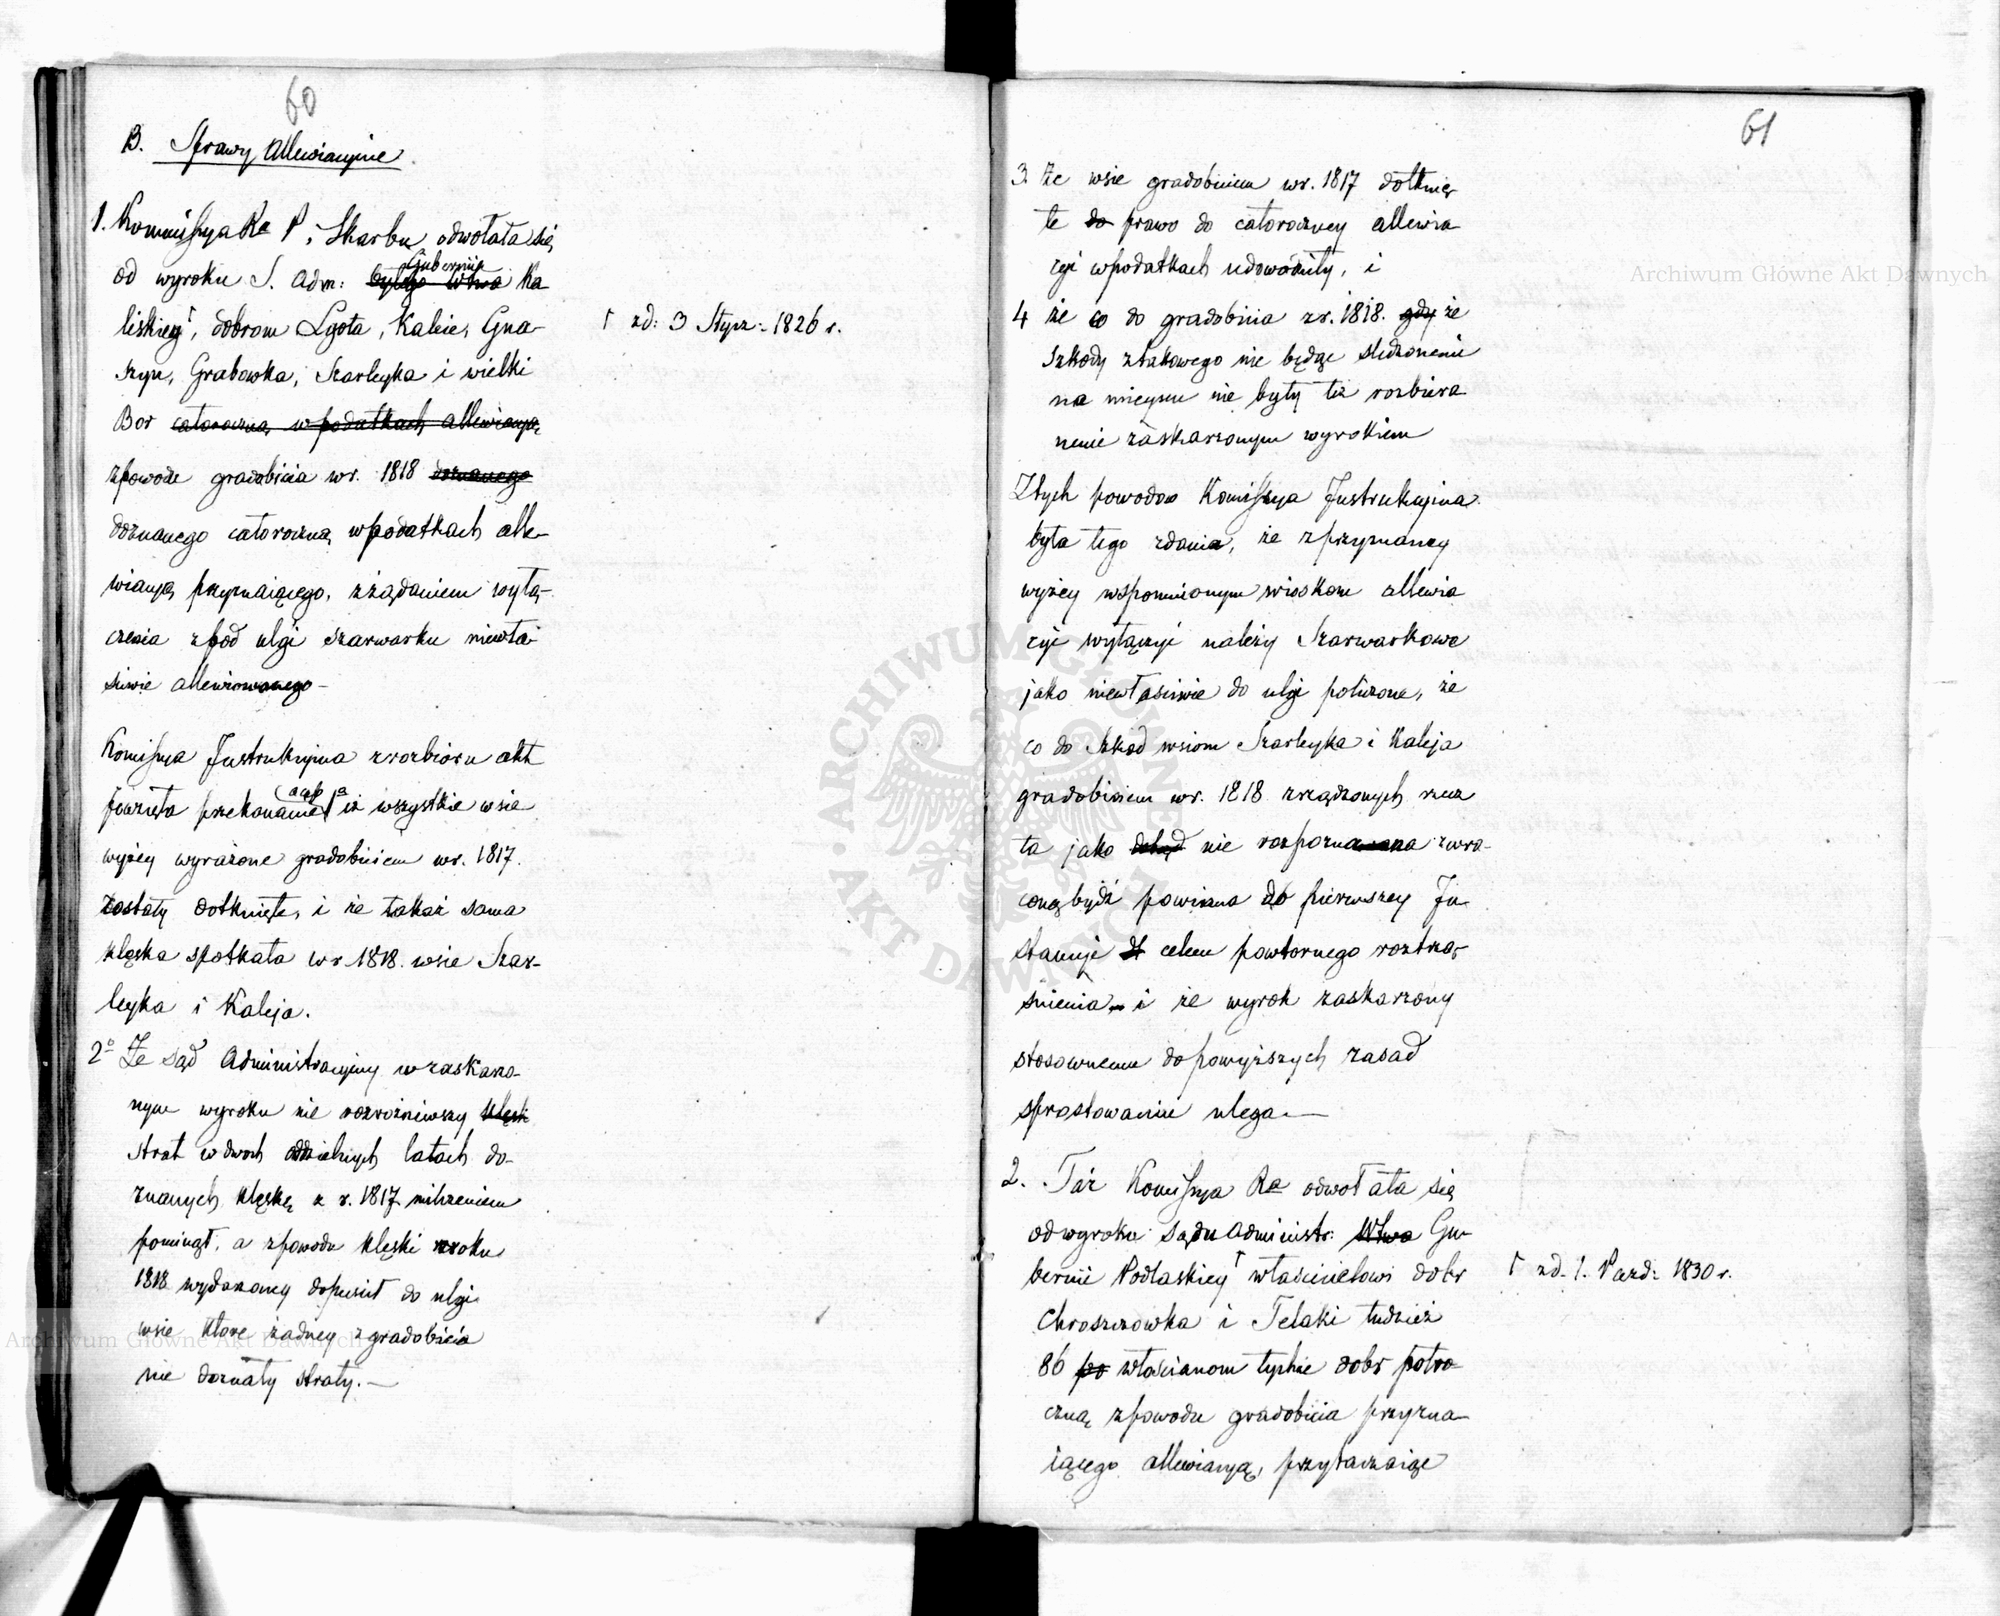 60
B. Sprawy Allewiacyjne
1. Kommissya Ra P. i Skarbu odwołała się
od wyroku S. Adm: byłego Wtwa Gubernii Ka
liskiey, dobrom Lgota, Kalie, Gna-
szyn, Grabowka, Szarleyka i wielki
Bor całoroczną w podatkach allewiacyą
zpowodu gradobicia wr. 1818 doznanego
doznanego całoroczną wpodatkach alle-
wiacyą przyznaiącego, zżądaniem wyłą-
czenia zpod ulgi szarwarku niewła-
ściwie allewiowanego -
┌ zd: 3 Stycz: 1826 r.
Komissya Instrukcyjna zrozbioru akt
powzięła przekonanie iż wszystkie wsie
wyżey wyrażone gradobiciem wr. 1817.
zostały dotknięte, i że takaż sama
klęska spotkała wr 1818. wsie Szar-
leyka i Kaleja.
2º Że Sąd Administracyjny w zaskarżo-
nym wyroku nie rozróżniwszy klęsk
strat w dwoch oddzielnych latach do-
znanych klęskę z r. 1817 milczeniem
pominął, a zpowodu klęski wroku
1818 wydarzoney dopuścił do ulgi
wsie które żadney z gradobicia
nie doznały straty. —
61
3. Że wsie gradobiciem wr. 1817 dotknię
te do prawo do całoroczney allewia
cyi wpodatkach udowodniły, i
4 że co do gradobicia zr. 1818. gdy że
szkody ztakowego nie będąc śledzonemi
na mieyscu nie były też rozbiera
nemi zaskarzonym wyrokiem
Ztych powodow Komissya Instrukcyjna
była tego zdania, że zprzyznaney
wyżey wspomnionym wioskom allewia
cyi wyłączyć należy Szarwarkowe
jako niewłaściwie do ulgi policzone, że
co do Szkod wsiom Szarleyka i Kaleja
gradobiciem wr. 1818 zrządzonych rzecz
ta jako dotąd nie rozpoznawana zwró-
coną bydź powinna do pierwszey In
stancyi celem powtornego roztrzą-
śnienia i że wyrok zaskarzony
stosownemu dopowyższych zasad
sprostowaniu ulega. —
2. Taż Komissya Ra odwołała się
odwyroku Sądu Administr: Wtwa Gu
bernii Podlaskiey właścicielowi dobr
Choroszczowka i Telaki tudzież
86 po włościanom tychże dobr poło
czną zpowodu gradobicia przyzna
iącego allewiacyą, przytaczaiąc
┌ zd. 1. Pazd: 1830 r.
Archiwum Główne Akt Dawnych
ARCHIWUM GŁÓWNE AKT DAWNYCH
Archiwum Główne Akt Dawnych